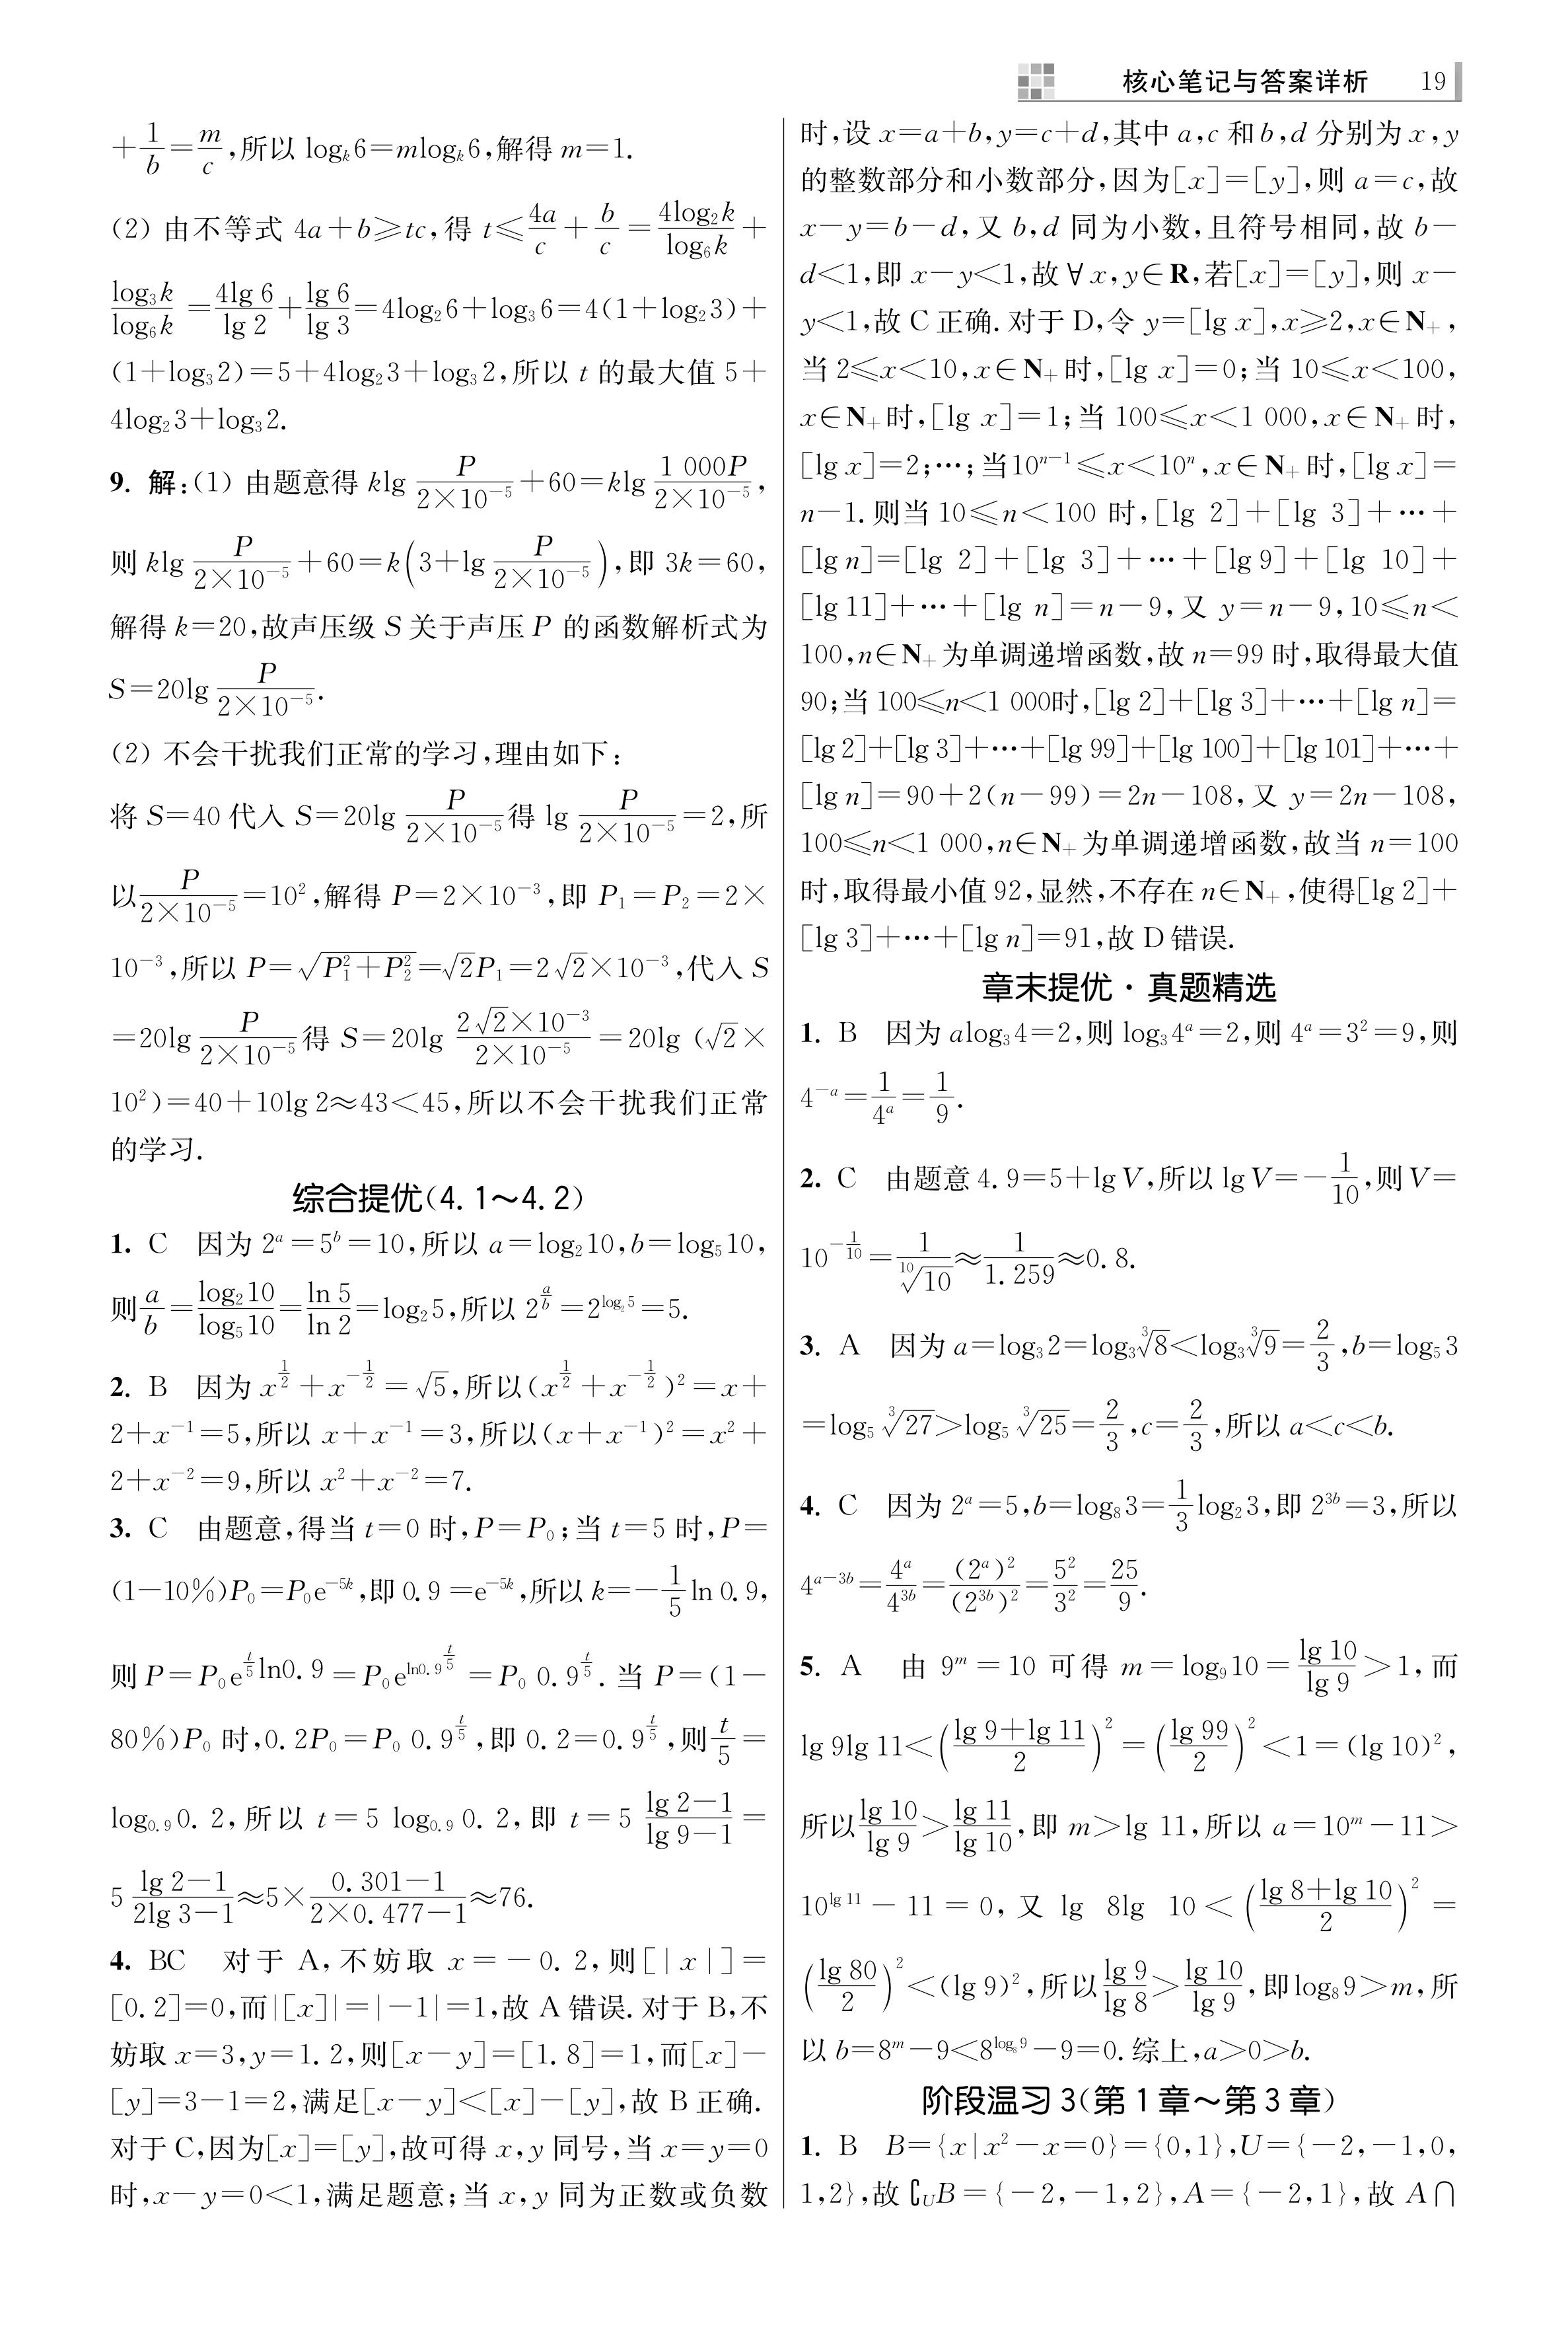 核心笔记与答案详析 19
+1/b=m/c,所以 logₖ6=mlogₖ6,解得 m=1.
(2) 由不等式 4a+b≥tc,得 t≤4a/c+b/c=4log₂k/log₆k+
log₃k/log₆k=4lg 6/lg 2+lg 6/lg 3=4log₂6+log₃6=4(1+log₂3)+
(1+log₃2)=5+4log₂3+log₃2,所以 t 的最大值 5+
4log₂3+log₃2.
9. 解:(1) 由题意得 klg P/(2×10⁻⁵)+60=klg 1 000P/(2×10⁻⁵),
则 klg P/(2×10⁻⁵)+60=k(3+lg P/(2×10⁻⁵)),即 3k=60,
解得 k=20,故声压级 S 关于声压 P 的函数解析式为
S=20lg P/(2×10⁻⁵).
(2) 不会干扰我们正常的学习,理由如下:
将 S=40 代入 S=20lg P/(2×10⁻⁵)得 lg P/(2×10⁻⁵)=2,所
以P/(2×10⁻⁵)=10²,解得 P=2×10⁻³,即 P₁=P₂=2×
10⁻³,所以 P=√(P₁²+P₂²)=√2P₁=2√2×10⁻³,代入 S
=20lg P/(2×10⁻⁵)得 S=20lg (2√2×10⁻³)/(2×10⁻⁵)=20lg (√2×
10²)=40+10lg 2≈43<45,所以不会干扰我们正常
的学习.
综合提优(4.1~4.2)
1. C 因为 2ᵃ=5ᵇ=10,所以 a=log₂10,b=log₅10,
则a/b=log₂10/log₅10=ln 5/ln 2=log₂5,所以 2^(a/b)=2^(log₂5)=5.
2. B 因为 x^(1/2)+x^(-1/2)=√5,所以(x^(1/2)+x^(-1/2))²=x+
2+x⁻¹=5,所以 x+x⁻¹=3,所以(x+x⁻¹)²=x²+
2+x⁻²=9,所以 x²+x⁻²=7.
3. C 由题意,得当 t=0 时,P=P₀;当 t=5 时,P=
(1-10%)P₀=P₀e^(-5k),即 0.9=e^(-5k),所以 k=-1/5 ln 0.9,
则 P=P₀e^(t/5)ln0.9=P₀e^(ln0.9^(t/5))=P₀ 0.9^(t/5). 当 P=(1-
80%)P₀ 时,0.2P₀=P₀ 0.9^(t/5),即 0.2=0.9^(t/5),则t/5=
log₀.₉0.2,所以 t=5 log₀.₉0.2,即 t=5 (lg 2-1)/(lg 9-1)=
5 (lg 2-1)/(2lg 3-1)≈5×(0.301-1)/(2×0.477-1)≈76.
4. BC 对于 A,不妨取 x=-0.2,则[|x|]=
[0.2]=0,而|[x]|=|-1|=1,故 A 错误. 对于 B,不
妨取 x=3,y=1.2,则[x-y]=[1.8]=1,而[x]-
[y]=3-1=2,满足[x-y]<[x]-[y],故 B 正确.
对于 C,因为[x]=[y],故可得 x,y 同号,当 x=y=0
时,x-y=0<1,满足题意;当 x,y 同为正数或负数
时,设 x=a+b,y=c+d,其中 a,c 和 b,d 分别为 x,y
的整数部分和小数部分,因为[x]=[y],则 a=c,故
x-y=b-d,又 b,d 同为小数,且符号相同,故 b-
d<1,即 x-y<1,故∀x,y∈R,若[x]=[y],则 x-
y<1,故 C 正确. 对于 D,令 y=[lg x],x≥2,x∈N₊,
当 2≤x<10,x∈N₊时,[lg x]=0;当 10≤x<100,
x∈N₊时,[lg x]=1;当 100≤x<1 000,x∈N₊时,
[lg x]=2;…;当10ⁿ⁻¹≤x<10ⁿ,x∈N₊时,[lg x]=
n-1. 则当 10≤n<100 时,[lg 2]+[lg 3]+…+
[lg n]=[lg 2]+[lg 3]+…+[lg 9]+[lg 10]+
[lg 11]+…+[lg n]=n-9,又 y=n-9,10≤n<
100,n∈N₊为单调递增函数,故 n=99 时,取得最大值
90;当 100≤n<1 000时,[lg 2]+[lg 3]+…+[lg n]=
[lg 2]+[lg 3]+…+[lg 99]+[lg 100]+[lg 101]+…+
[lg n]=90+2(n-99)=2n-108,又 y=2n-108,
100≤n<1 000,n∈N₊为单调递增函数,故当 n=100
时,取得最小值 92,显然,不存在 n∈N₊,使得[lg 2]+
[lg 3]+…+[lg n]=91,故 D 错误.
章末提优·真题精选
1. B 因为 alog₃4=2,则 log₃4ᵃ=2,则 4ᵃ=3²=9,则
4⁻ᵃ=1/4ᵃ=1/9.
2. C 由题意 4.9=5+lg V,所以 lg V=-1/10,则 V=
10^(-1/10)=1/¹⁰√10≈1/1.259≈0.8.
3. A 因为 a=log₃2=log₃∛8<log₃∛9=2/3,b=log₅3
=log₅∛27>log₅∛25=2/3,c=2/3,所以 a<c<b.
4. C 因为 2ᵃ=5,b=log₈3=1/3 log₂3,即 2³ᵇ=3,所以
4ᵃ⁻³ᵇ=4ᵃ/4³ᵇ=(2ᵃ)²/(2³ᵇ)²=5²/3²=25/9.
5. A 由 9ᵐ=10 可得 m=log₉10=lg 10/lg 9>1,而
lg 9lg 11<((lg 9+lg 11)/2)²=(lg 99/2)²<1=(lg 10)²,
所以lg 10/lg 9>lg 11/lg 10,即 m>lg 11,所以 a=10ᵐ-11>
10^(lg 11)-11=0,又 lg 8lg 10<((lg 8+lg 10)/2)²=
(lg 80/2)²<(lg 9)²,所以lg 9/lg 8>lg 10/lg 9,即log₈9>m,所
以 b=8ᵐ-9<8^(log₈9)-9=0. 综上,a>0>b.
阶段温习 3(第 1 章~第 3 章)
1. B B={x|x²-x=0}={0,1},U={-2,-1,0,
1,2},故∁ᵤB={-2,-1,2},A={-2,1},故 A∩